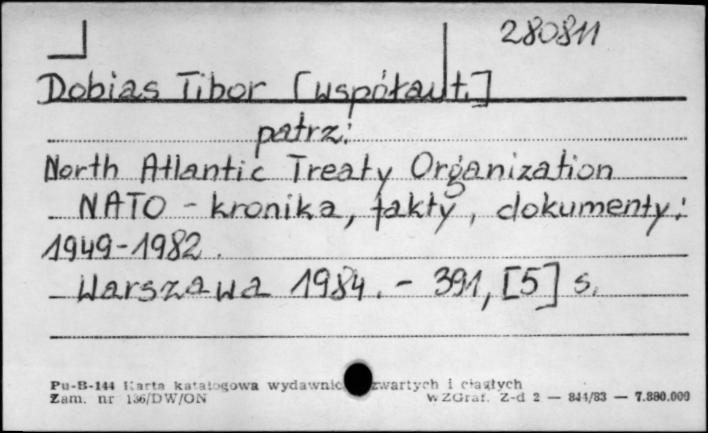 280811
Dobias Tibor [współaut.]
patrz:
North Atlantic Treaty Organization
NATO - kronika, fakty, dokumenty:
1949-1982.
Warszawa 1984. - 391, [5] s.
Pu-B-144 Karta katalogowa wydawnic zwartych i ciągłych
Zam. nr 136/DW/ON WZGraf. Z-d 2 — 844/83 — 7.880.000